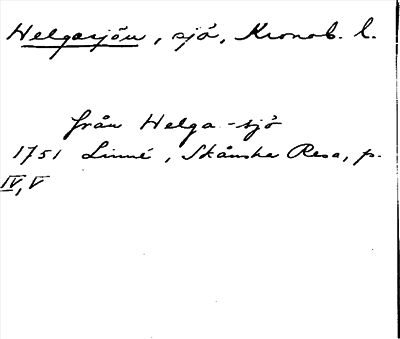 Helgasjön, sjö, Kronob. l.
från Helga-sjö
1751 Linné, Skånska Resa, p.
IV, V